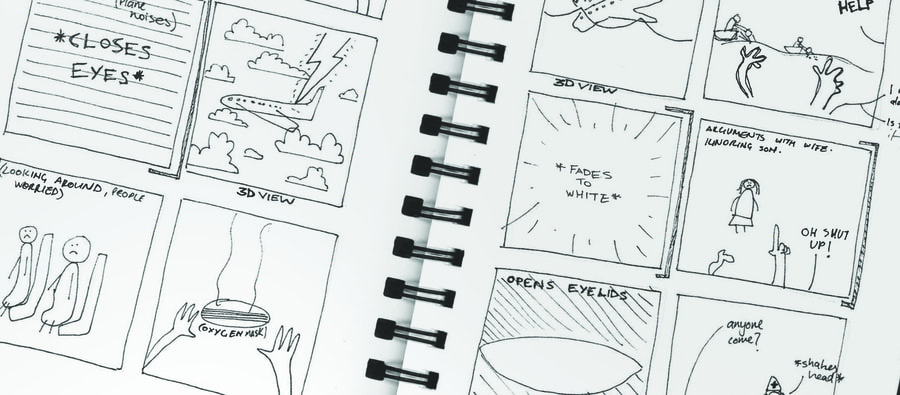 (plane
noises)
*CLOSES
EYES*
3D VIEW
(LOOKING AROUND, PEOPLE
WORRIED)
(OXYGEN MASK)
HELP
3D VIEW
*FADES
TO
WHITE*
ARGUMENTS WITH WIFE.
IGNORING SON.
OH SHUT
UP!
OPENS EYELIDS
anyone
come?
*shakes
head*